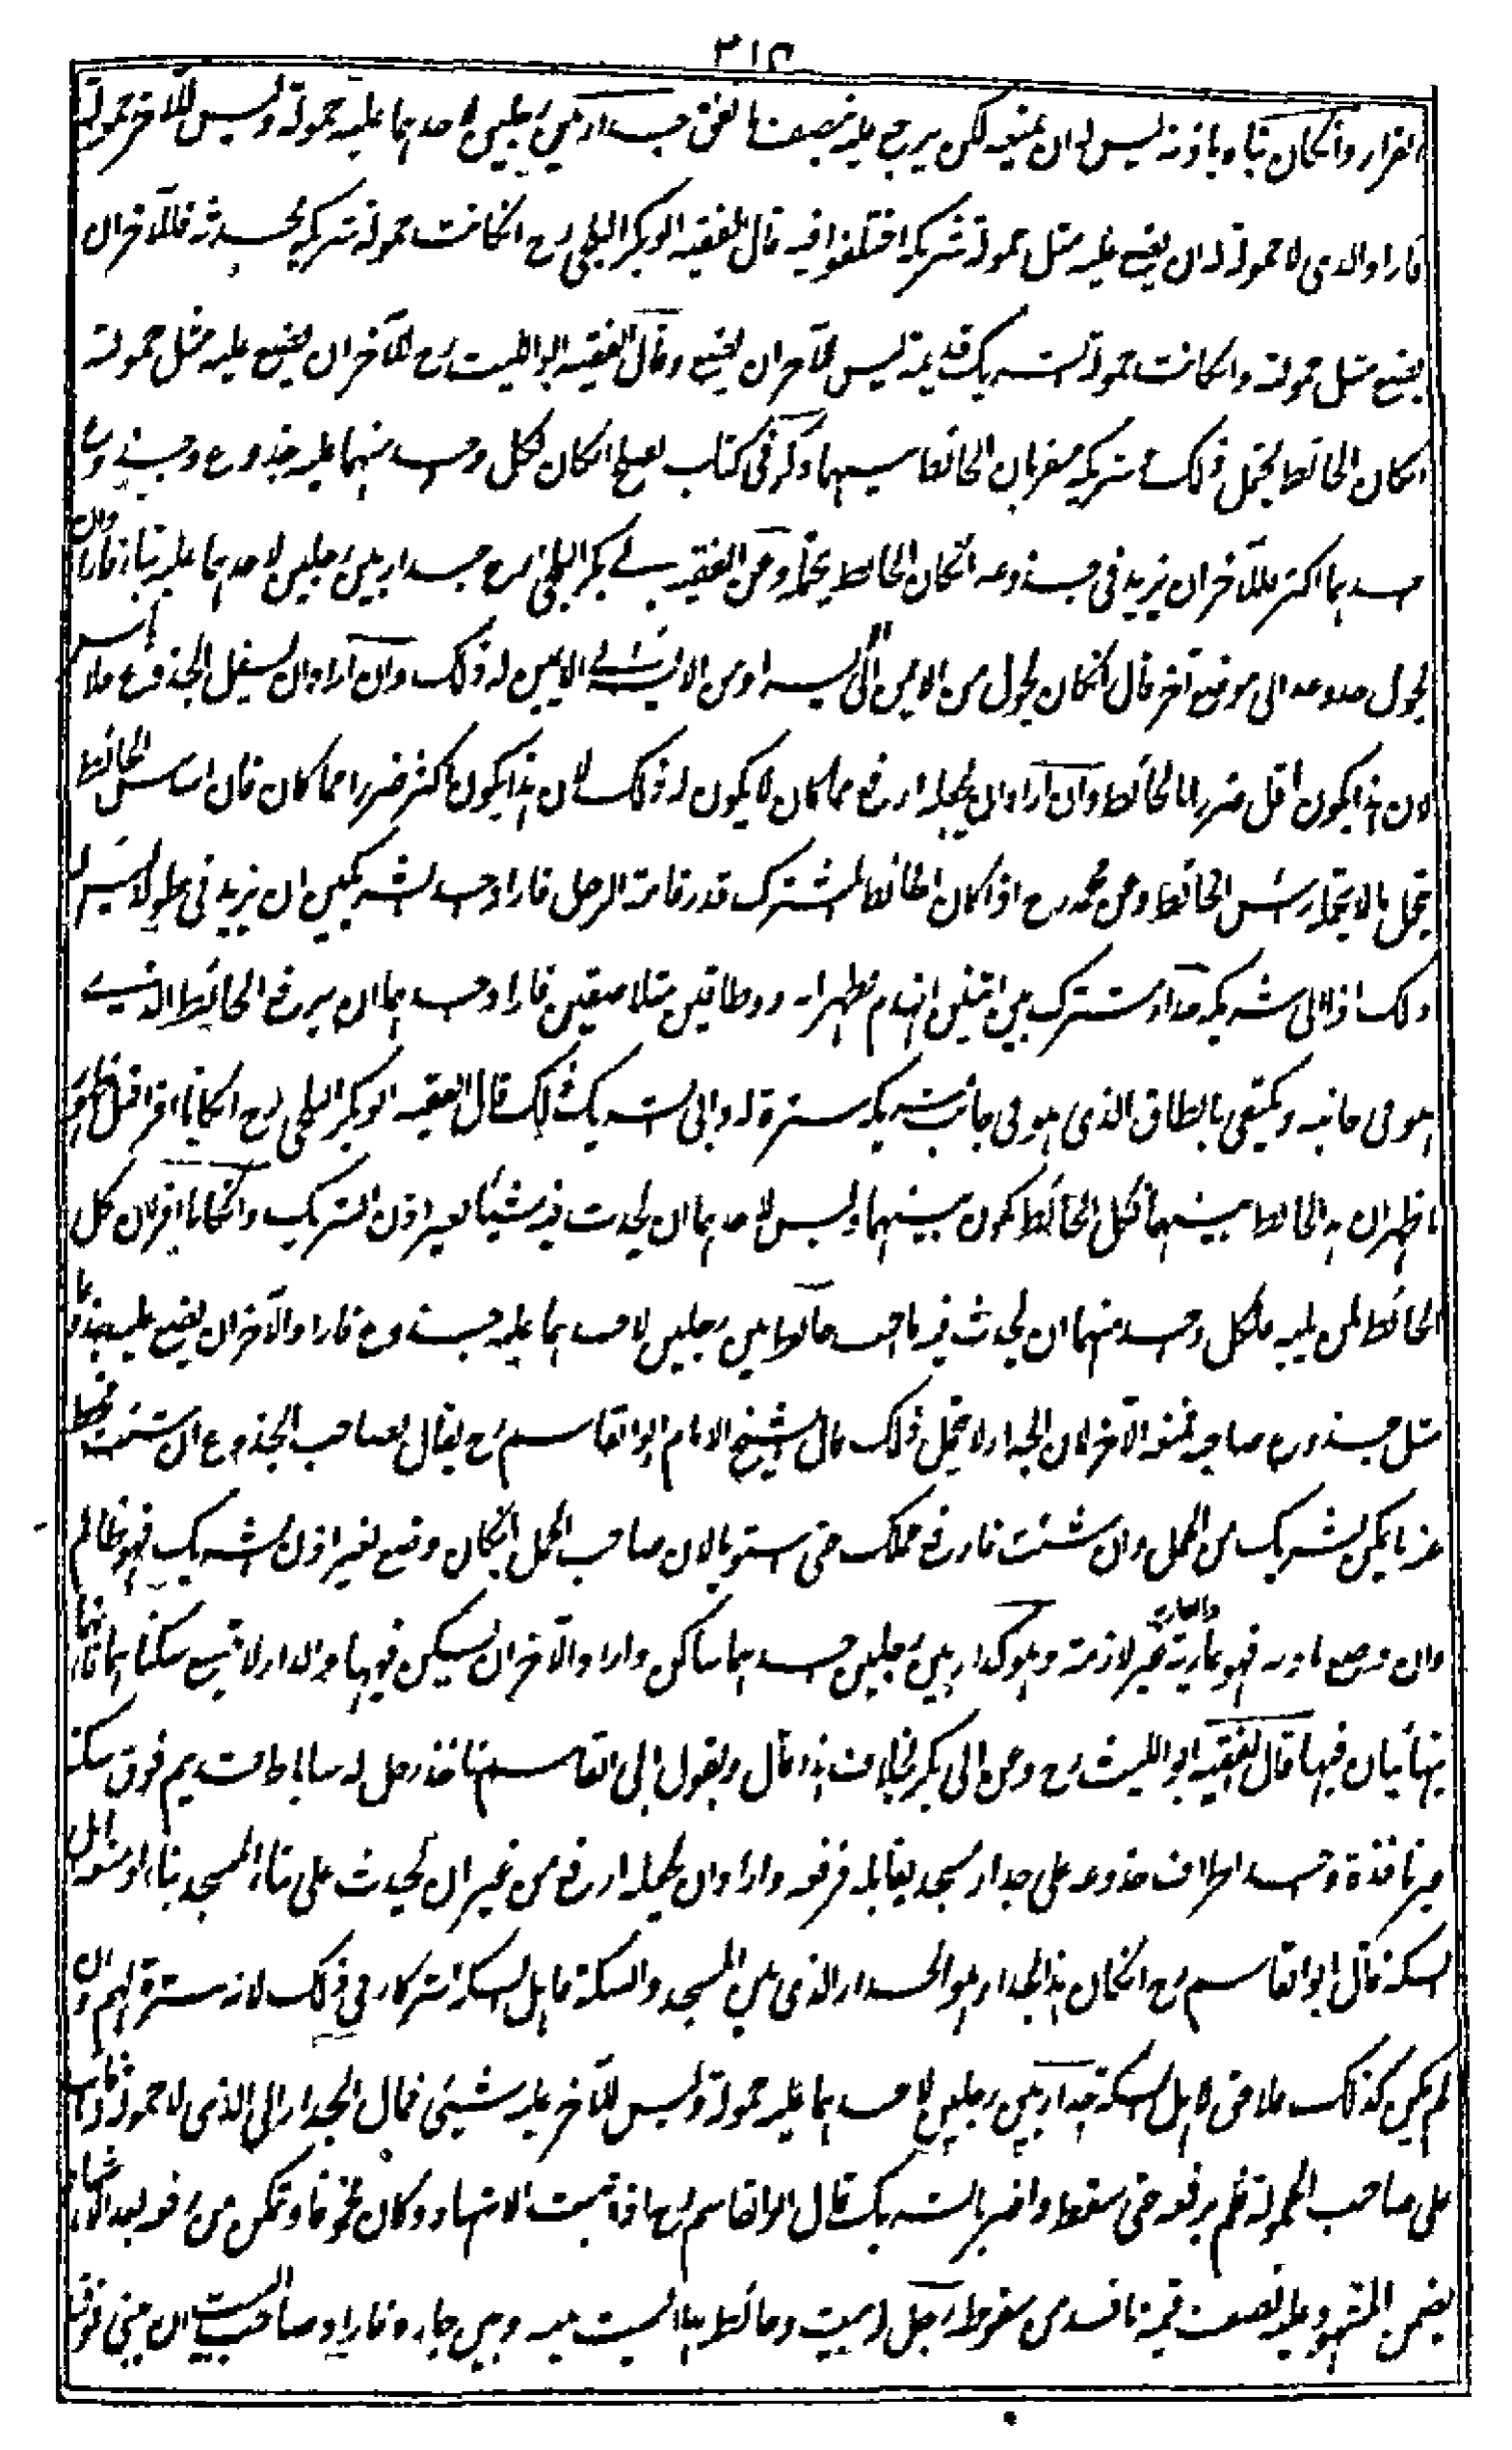 ٣١٢
القرار وان كان بناه باذنه ليس له ان يمنعه لكن يرجع عليه بنصف ما انفق جدار بين رجلين لاحدهما عليه حمولة وليس للآخر حمولة
فاراد الذى لا حمولة له ان يضع عليه مثل حمولة شريكه اختلفوا فيه قال الفقيه ابو بكر البلخى رح انكانت حمولة شريكه محدثة فللآخر ان
يضع مثل حمولته وانكانت حمولة الشريك قديمة ليس للآخر ان يضع وقال الفقيه ابو الليث رح للآخر ان يضع عليه مثل حمولته
انكان الحائط يحتمل ذلك شريكه مقر بان الحائط بينهما وذكر فى كتاب الصلح انكان لكل واحد منهما عليه جذوع وجذوع
احدهما اكثر فللآخر ان يزيد فى جذوعه انكان الحائط يحتمل وعن الفقيه ابى بكر البلخى رح جدار بين رجلين لاحدهما عليه بناء فاراد ان
يحول جذوعه الى موضع آخر قال انكان يحول من الايمن الى الايسر او من الايسر الى الايمن له ذلك وان اراد ان يسفل الجذوع فلا باس
لان هذا يكون اقل ضررا بالحائط وان اراد ان يجعله ارفع مما كان لا يكون له ذلك لان هذا يكون اكثر ضررا مما كان فان اساس الحائط
يتحمل ما لا يتحمله رأس الحائط وعن محمد رح اذا كان الحائط المشترك قدر قامة الرجل فاراد احد الشريكين ان يزيد فى طوله ليس له
ذلك اذا ابى شريكه جدار مشترك بين اثنين انهدم فظهر انه ذو طاقين متلاصقين فاراد احدهما ان يرفع الحائط الذى
هو فى جانبه ويكتفى بالطاق الذى هو فى جانب شريكه سترة له وابى الشريك ذلك قال الفقيه ابو بكر البلخى رح انكانا اقرا قبل ظهور
ما ظهر ان هذا الحائط بينهما فكل الحائط يكون بينهما وليس لاحدهما ان يحدث فيه شيئا بغير اذن الشريك وانكانا اقرا ان كل
الحائط لمن يليه فلكل واحد منهما ان يحدث فيه ما احب حائط بين رجلين لاحدهما عليه جذوع فاراد الآخر ان يضع عليه جذوعا
مثل جذوع صاحبه فمنعه الآخر لان الجدار لا يحتمل ذلك قال الشيخ الامام ابو القاسم رح يقال لصاحب الجذوع ان شئت فحط
عنه ما يمكن لشريك من الحمل وان شئت فارفع حملك حتى تستويا لان صاحب الحمل انكان وضع بغير اذن الشريك فهو ظالم
وان وضع باذنه فهو عارية والعارية غير لازمة وهو كدار بين رجلين احدهما ساكن واراد الآخر ان يسكن فيها والدار لا تسع سكناهما فانهما
يتهائيان فيها قال الفقيه ابو الليث رح وعن ابى بكر بخلاف هذا قال وبقول ابى القاسم ناخذ رجل له ساباط قديم فوق سكة
غير نافذة واحد اطراف جذوعه على جدار مسجد يقابله فرفعه واراد ان يجعله ارفع من غير ان يحدث على بناء المسجد بناء ومنعه اهل
السكة قال ابو القاسم رح انكان هذا الجدار هو الجدار الذى بين المسجد والسكة فاهل السكة شركاء فى ذلك لانه سترة لهم وان
لم يكن كذلك فلا حق لاهل السكة جدار بين رجلين لاحدهما عليه حمولة وليس للآخر عليه شيئ فمال الجدار الى الذى لا حمولة له فاشهد
على صاحب الحمولة فلم يرفعه حتى سقط واضر بالشريك قال ابو القاسم رح اذا ثبت الاشهاد وكان مخوفا وتمكن من رفعه بعد الاشهاد
يضمن المشهود عليه نصف قيمة ما فسد من سقوطه رجل له بيت وحائط هذا البيت بينه وبين جاره فاراد صاحب البيت ان يبنى فوق